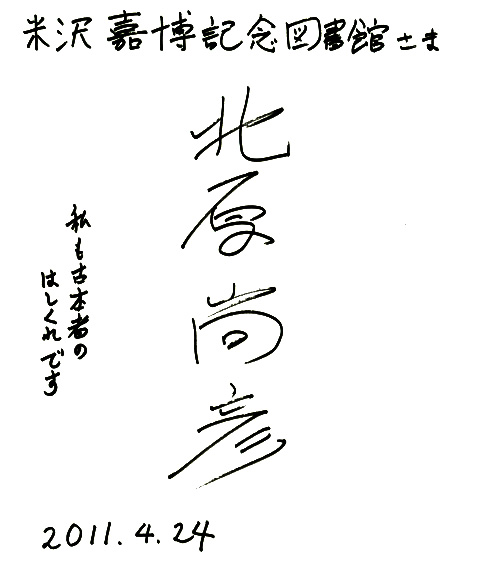 米沢嘉博記念図書館さま
北原尚彦
私も古本者の
はしくれです
2011.4.24